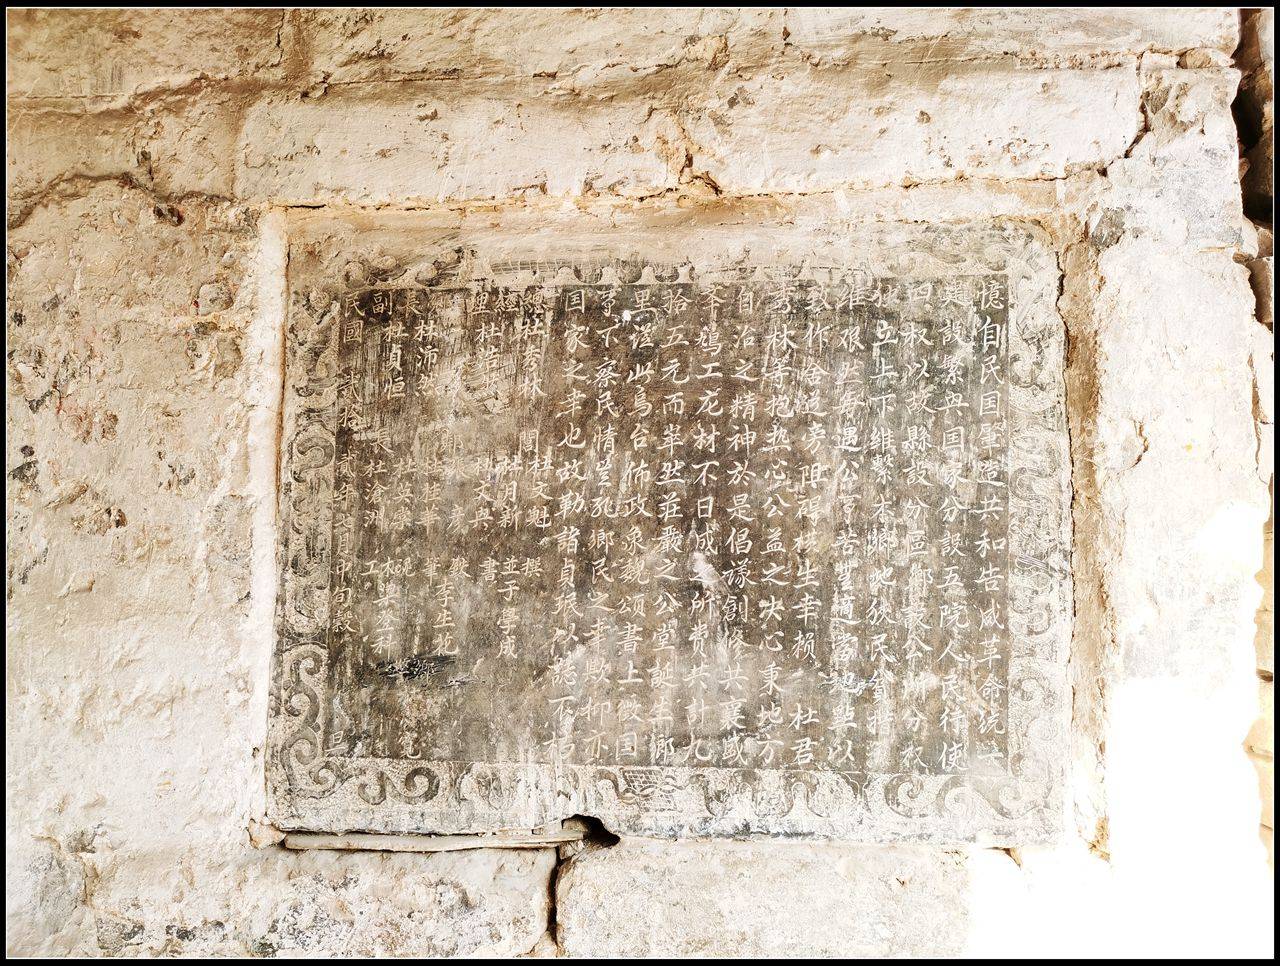 憶自民国肇造共和告成革命統一
建設繁興国家分設五院人民行使
四权以故縣設分區鄉設公所分权
独立上下維繫本鄉地狄民貧
维艰坐每遇公享苦無適當地點以
致作舍道旁阻碍横生幸賴 杜君
秀林等抱热心公益之决心秉地方
自治之精神於是倡議創修共襄盛
举鳩工庀材不日成之所费共計九
拾五元而翠然莊嚴之公堂誕生鄉
里从此鳥台佈政象魏頌書上徵国
享下察民情豈死鄉民之幸歟抑亦
国家之幸也故勒諸貞珉以誌不朽
總杜秀林 閭杜文魁 撰
經 杜月新 並于學成
理杜浩 杜文興 書
彦
長林沛然 杜桂華 筆李生花
副杜貞恒 杜英榮
長杜滄洲 工
民國 貳拾貳年七月中旬